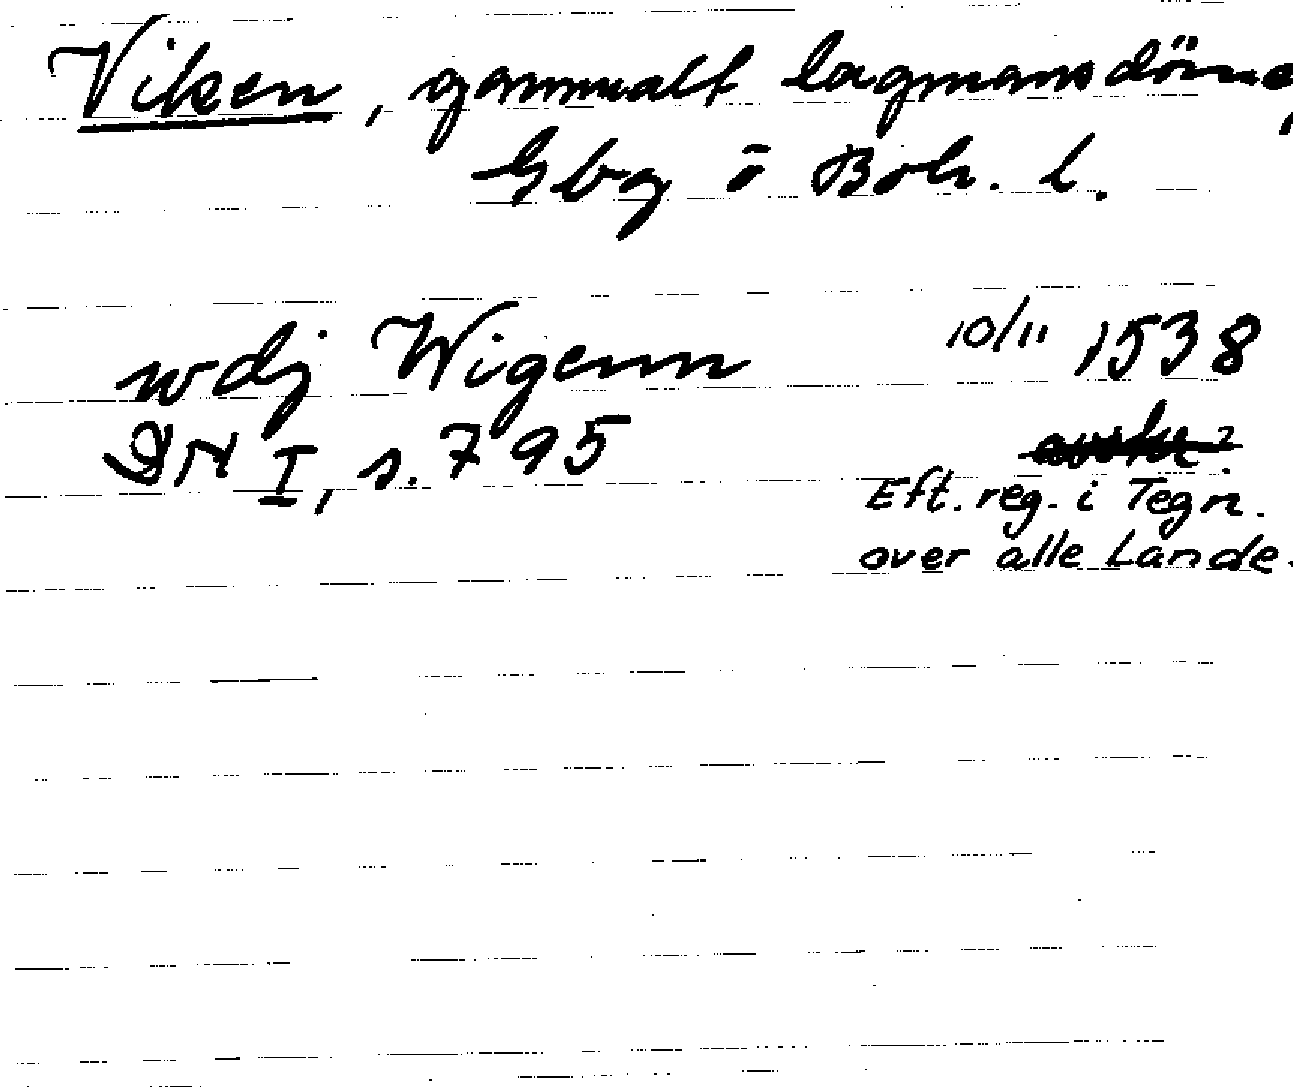 Viken, gammalt lagmansdöme,
Gbg o Boh. l.
wdj Wigenn 10/11 1538
DN I, s. 795
Eft. reg. i Tegn.
over alle Lande.